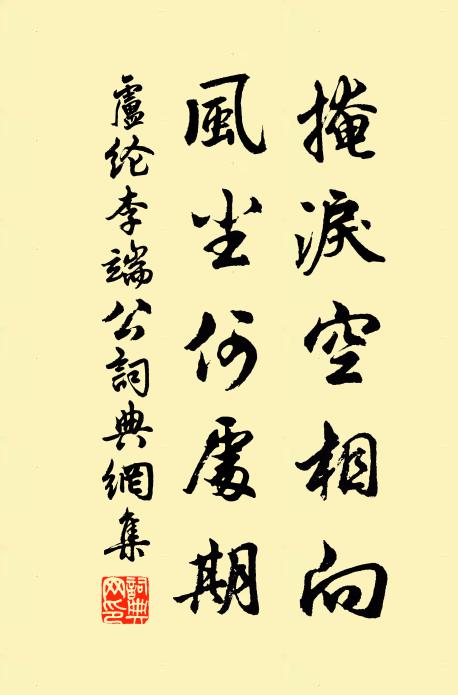 掩淚空相向
風尘何處期
盧纶李端公詞典網集
詞典网印